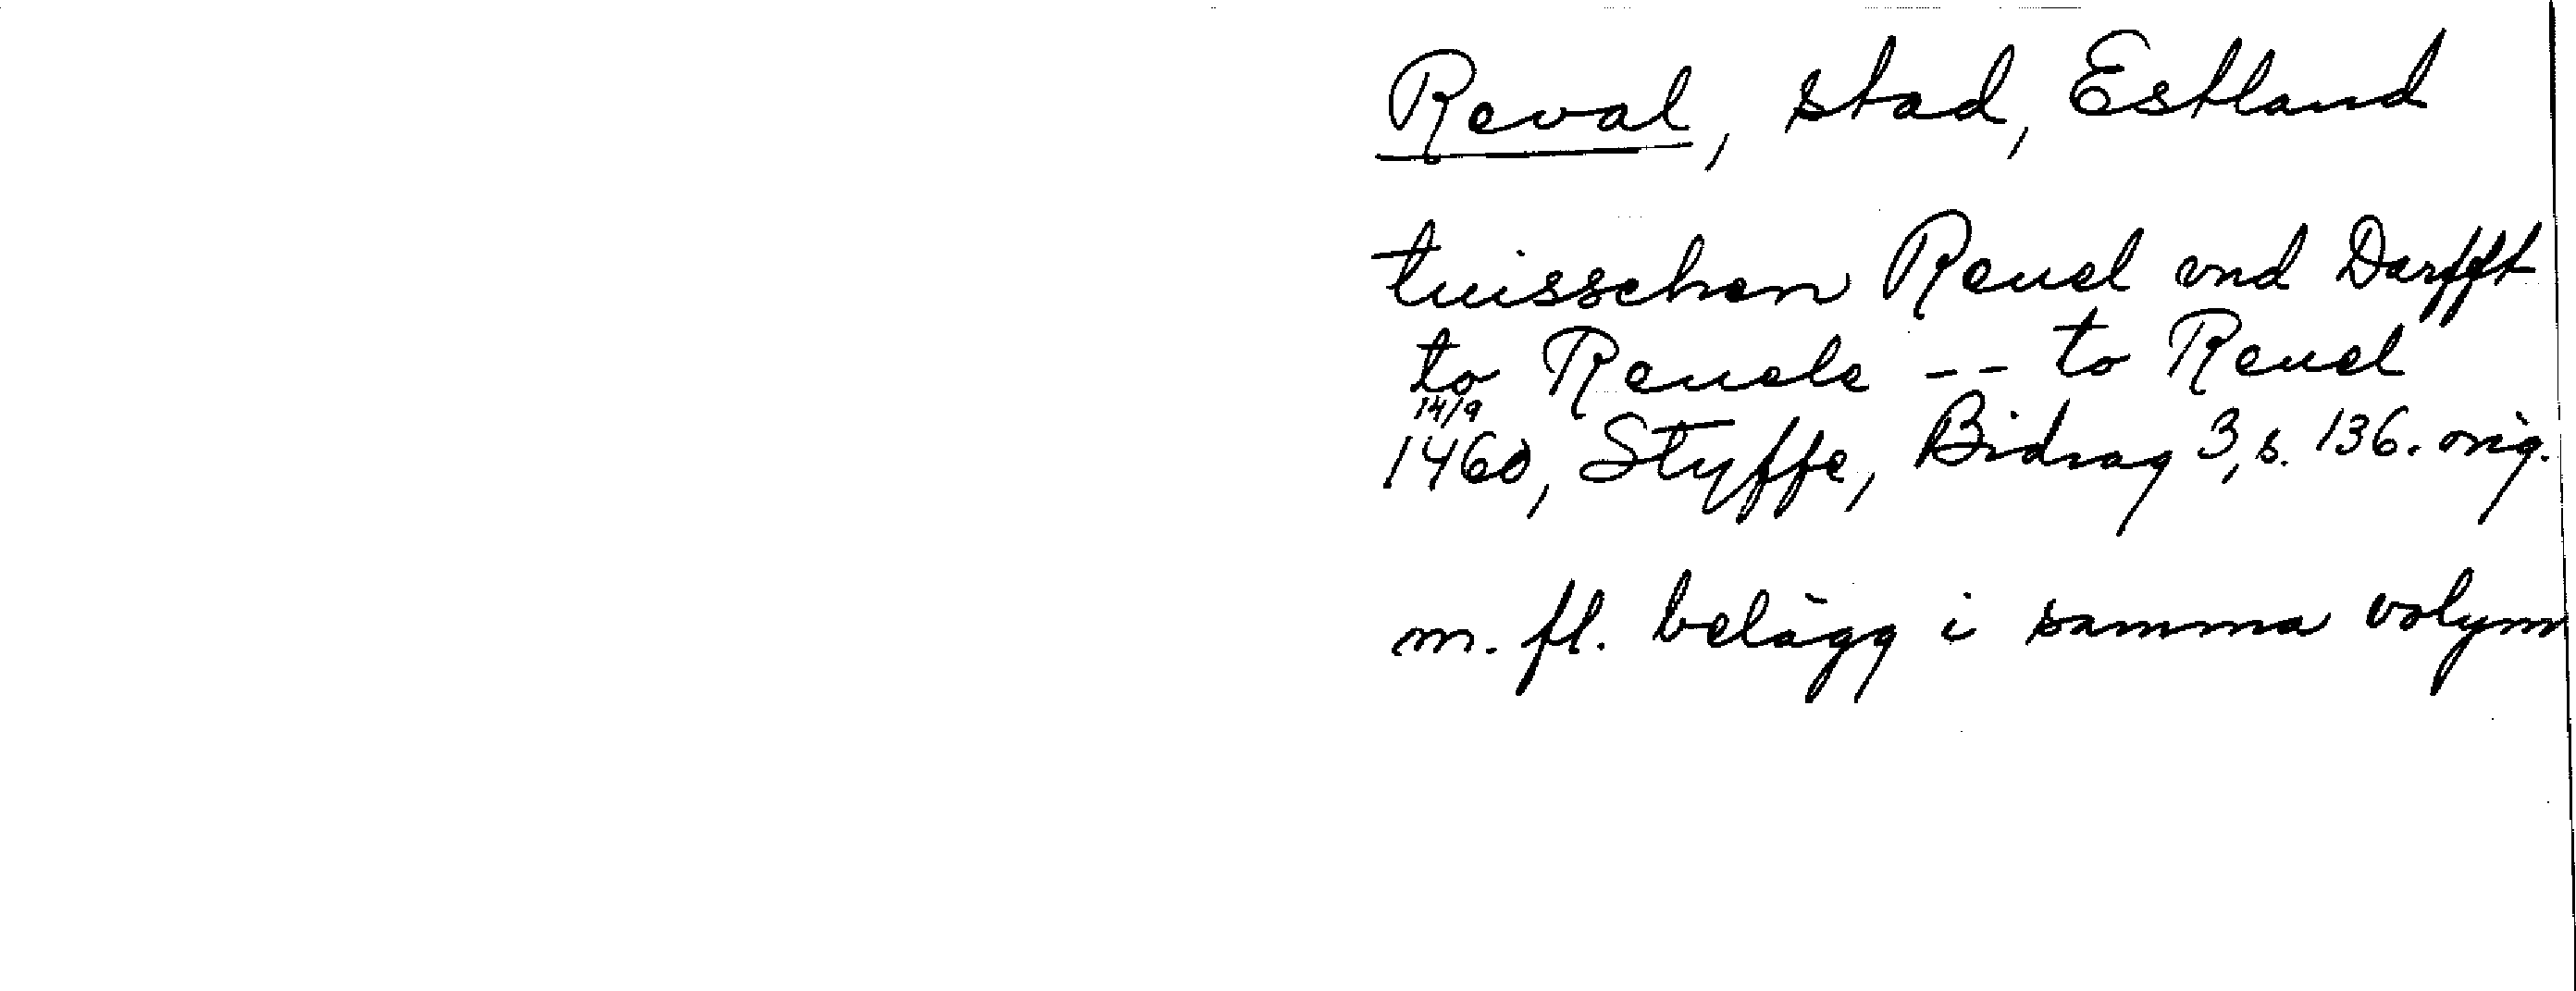 Reval, stad, Estland
tuisschen Reuel vnd Darfft
to Reuele -- to Reuel
14/9
1460, Styffe, Bidrag 3, s. 136. orig.
m. fl. belägg i samma volym